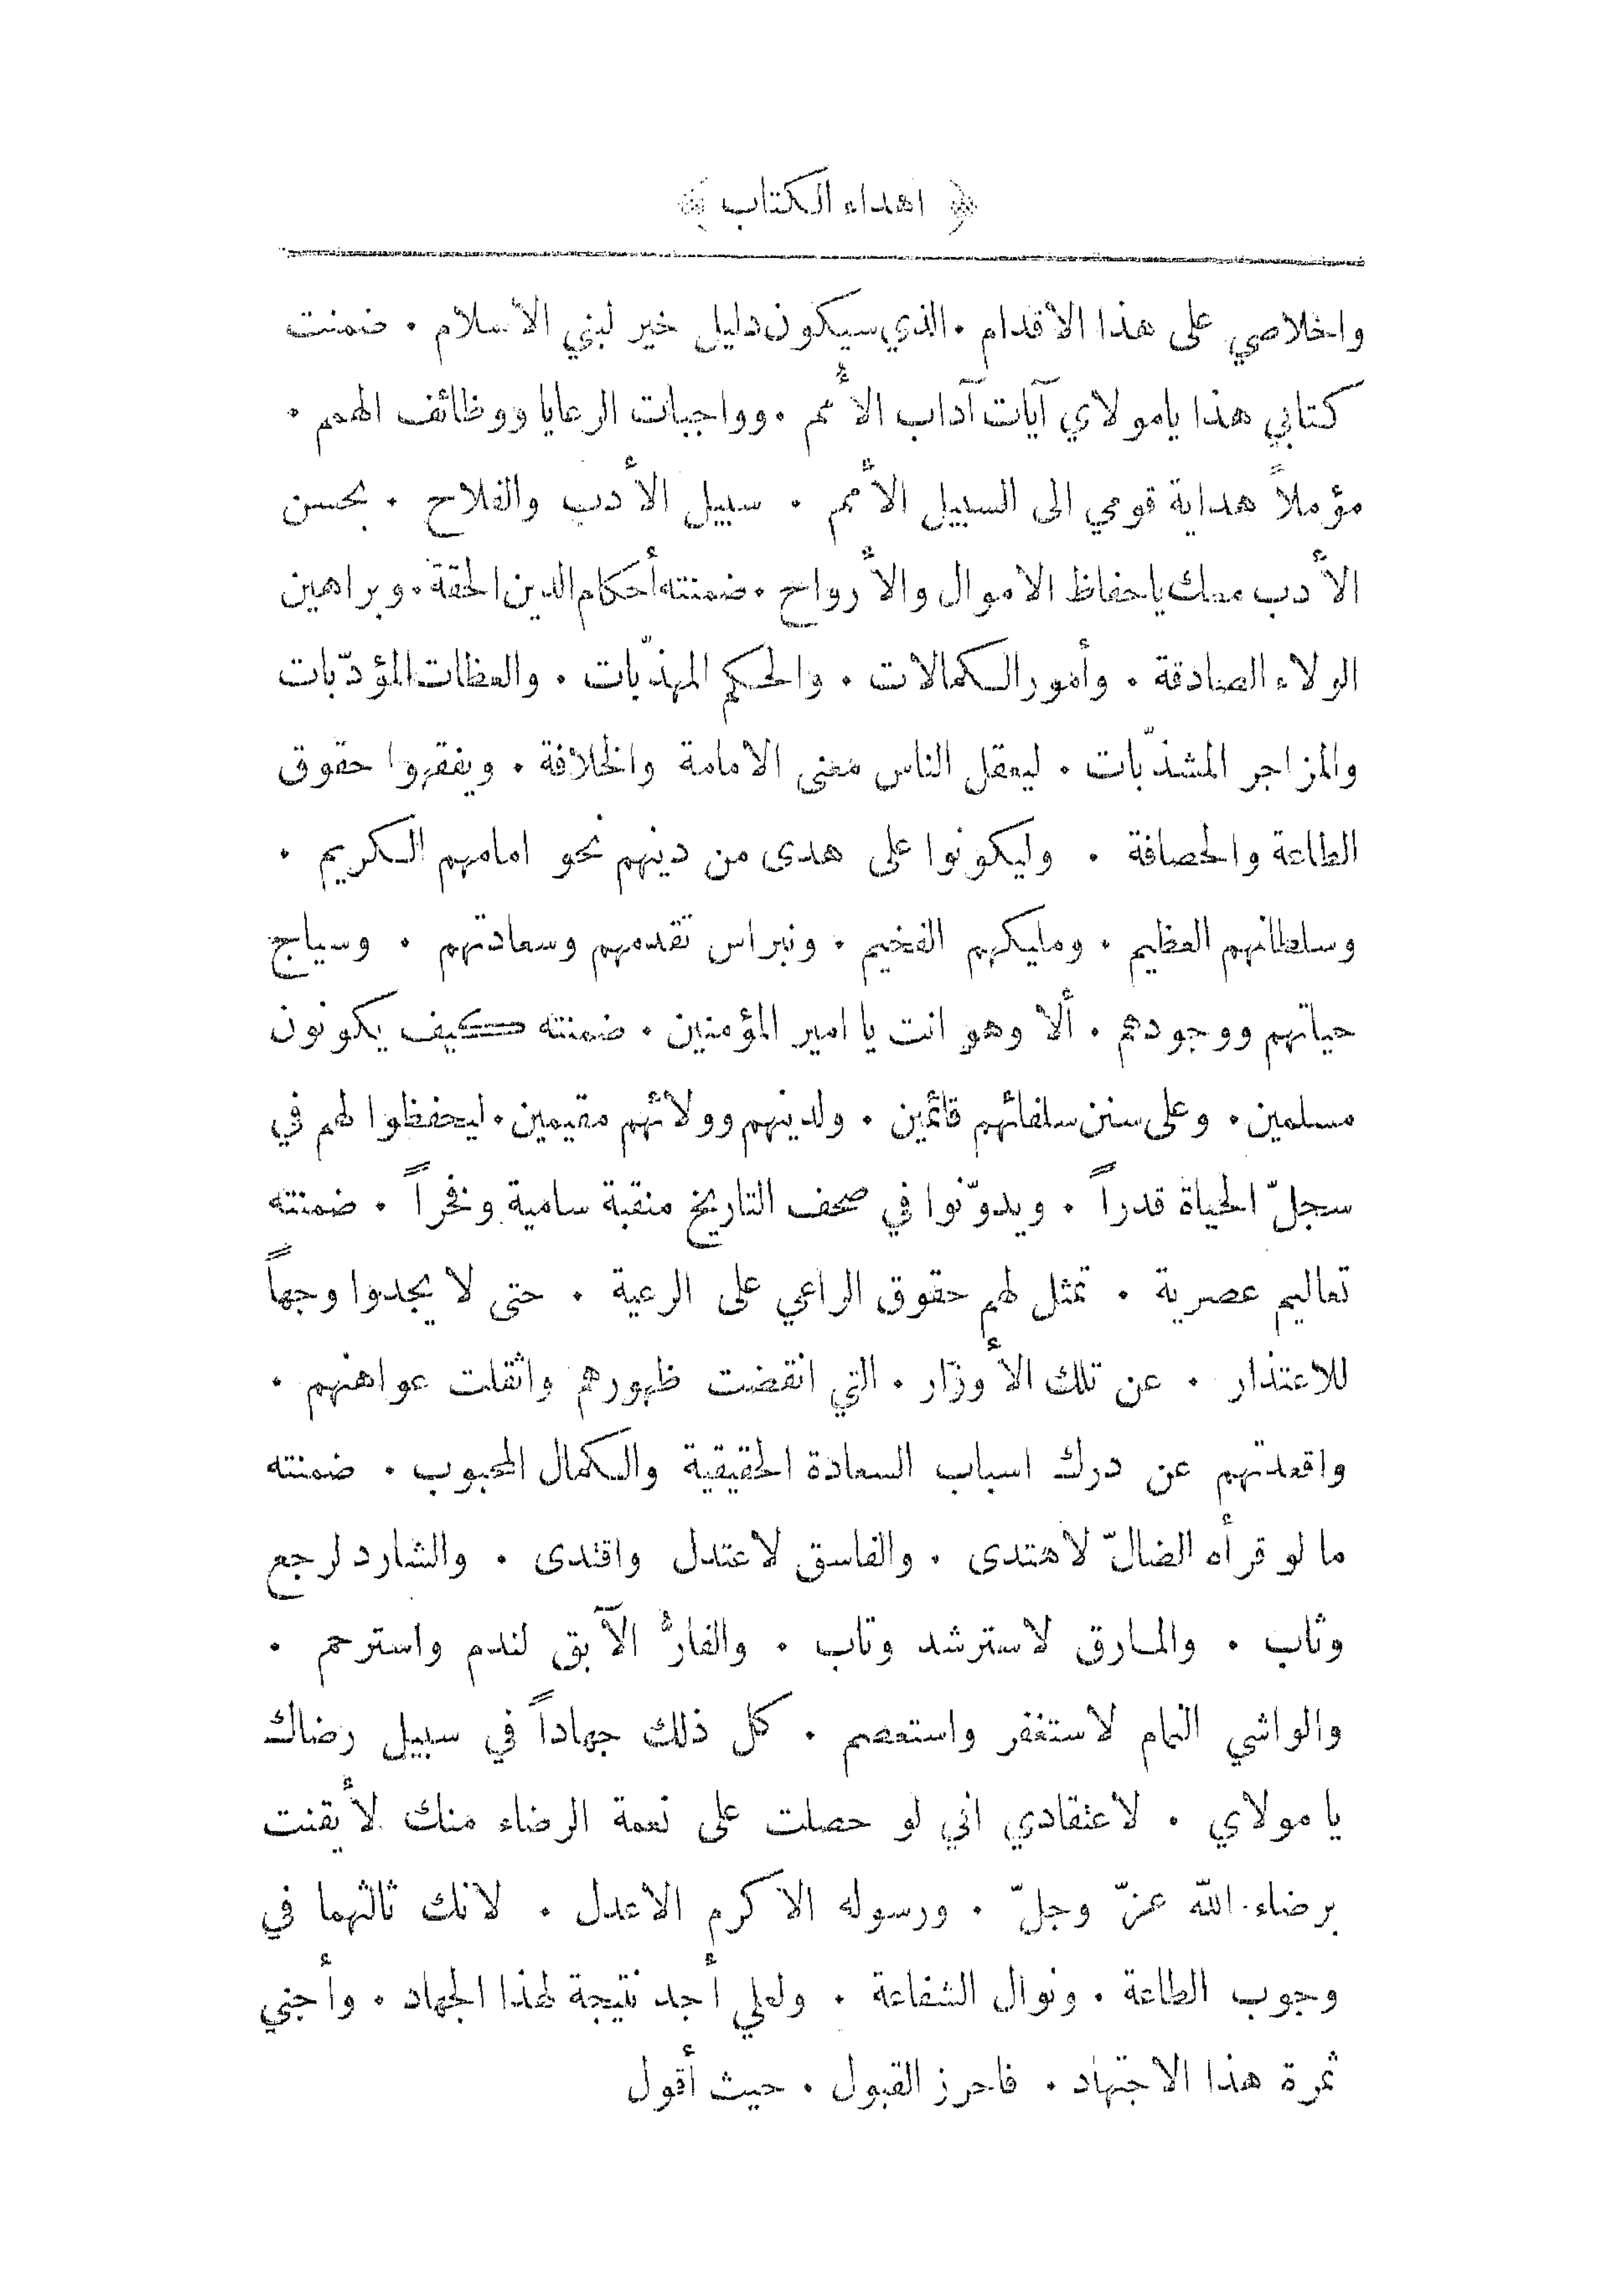 ﴿ اهداء الكتاب ﴾
واخلاصي على هذا الاقدام . الذي سيكون دليل خير لبني الاسلام . ضمنت
كتابي هذا يامولاي آيات آداب الأمم . وواجبات الرعايا ووظائف الهمم .
مؤملاً هداية قومي الى السبيل الأمم . سبيل الأدب والفلاح . بحسن
الأدب معك ياحفاظ الاموال والأرواح . ضمنته أحكام الدين الحقة . وبراهين
الولاء الصادقة . وأمور الكمالات . والحكم المهذّبات . والعظات المؤدّبات
والمزاجر المشذّبات . ليعقل الناس معنى الامامة والخلافة . ويفقهوا حقوق
الطاعة والحصافة . وليكونوا على هدى من دينهم نحو امامهم الكريم .
وسلطانهم العظيم . ومليكهم الفخيم . ونبراس تقدمهم وسعادتهم . وسياج
حياتهم ووجودهم . ألا وهو انت يا امير المؤمنين . ضمنته كيف يكونون
مسلمين . وعلى سنن سلفائهم قائمين . ولدينهم وولائهم مقيمين . ليحفظوا لهم في
سجلّ الحياة قدراً . ويدوّنوا في صحف التاريخ منقبة سامية وفخراً . ضمنته
تعاليم عصرية . تمثل لهم حقوق الراعي على الرعية . حتى لا يجدوا وجهاً
للاعتذار . عن تلك الأوزار . التي انقضت ظهورهم واثقلت عواهنهم .
واقعدتهم عن درك اسباب السعادة الحقيقية والكمال المحبوب . ضمنته
ما لو قرأه الضالّ لاهتدى . والفاسق لاعتدل واقتدى . والشارد لرجع
وثاب . والمارق لاسترشد وتاب . والفارُّ الآبق لندم واسترحم .
والواشي النمام لاستغفر واستعصم . كل ذلك جهاداً في سبيل رضاك
يا مولاي . لاعتقادي اني لو حصلت على نعمة الرضاء منك لأيقنت
برضاء الله عزّ وجلّ . ورسوله الاكرم الاعدل . لانك ثالثهما في
وجوب الطاعة . ونوال الشفاعة . ولعلي أجد نتيجة لهذا الجهاد . وأجني
ثمرة هذا الاجتهاد . فاحرز القبول . حيث أقول